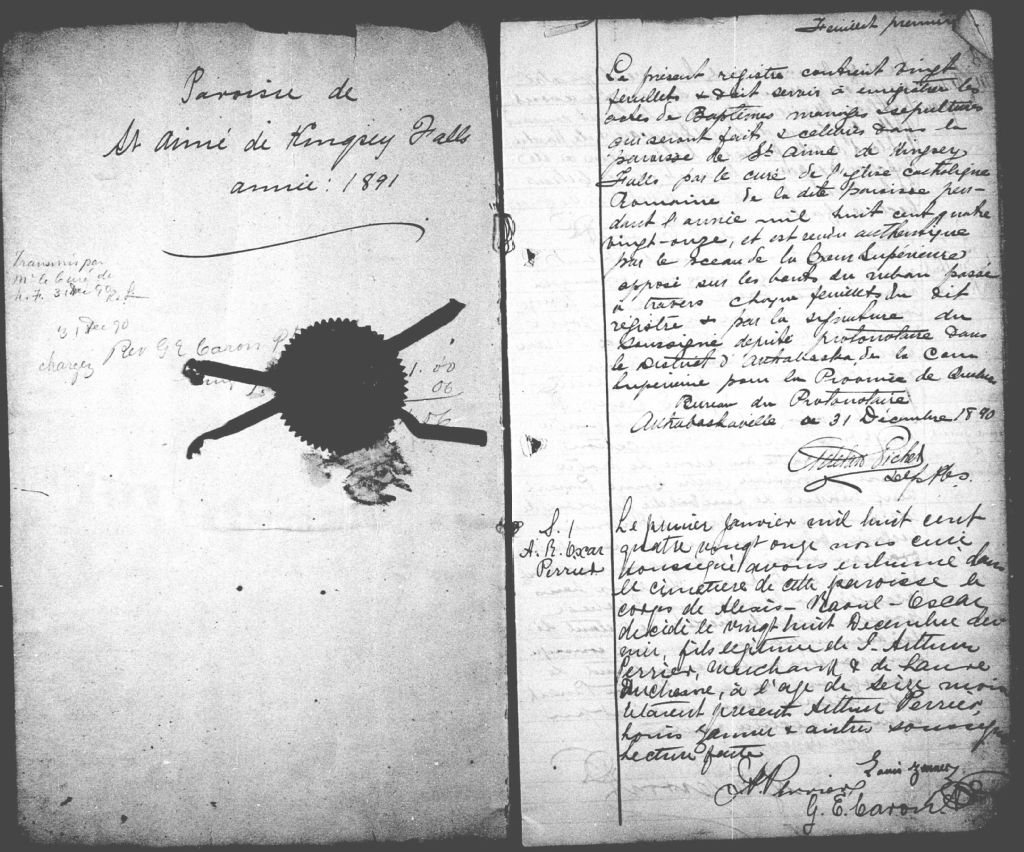 Paroisse de
St Aimé de Kingsey Falls
année: 1891
Transmis par
Mr le Curé de
K. F. 31 Dec 90
31 Dec 90
chargez Rev G E Caron
1.00
06
06
Feuillet premier
Le présent registre contient vingt
feuillets & doit servir à enregistrer les
actes de Baptêmes mariages & sépultures
qui seront faits & célébrés dans la
paroisse de St Aimé de Kingsey
Falls par le curé de l'église catholique
Romaine de la dite paroisse pen-
dant l'année mil huit cent quatre
vingt-onze, et est rendu authentique
par le sceau de la Cour Supérieure
apposé sur les bouts du ruban passé
à travers chaque feuillets du dit
régistre & par la signature du
Soussigné député protonotaire dans
le District d'Arthabaska de la Cour
Supérieure pour la Province de Québec
Bureau du Protonotaire
Arthabaskaville, ce 31 Décembre 1890
Pichet
S. 1
A. R. Oscar
Perrier
Le premier Janvier mil huit cent
quatre vingt onze nous curé
soussigné avons inhumé dans
le cimetière de cette paroisse le
corps de Alexis-Raoul-Oscar
décédé le vingt huit Décembre der
nier, fils légitime de J. Arthur
Perrier, Marchand & de Laure
Duchesne, à l'age de seize mois
Etaient présents Arthur Perrier,
Louis & autres soussignés
Lecture faite
Louis
A Perrier
G. E. Caron Ptre